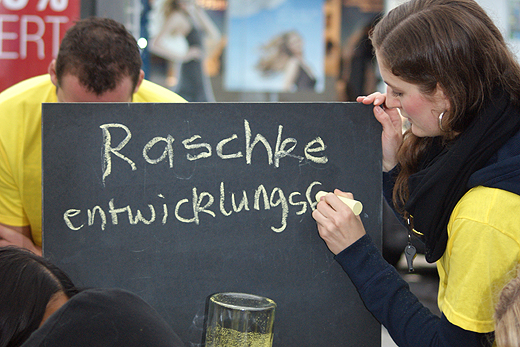 %
ERT
Raschke
entwicklungs